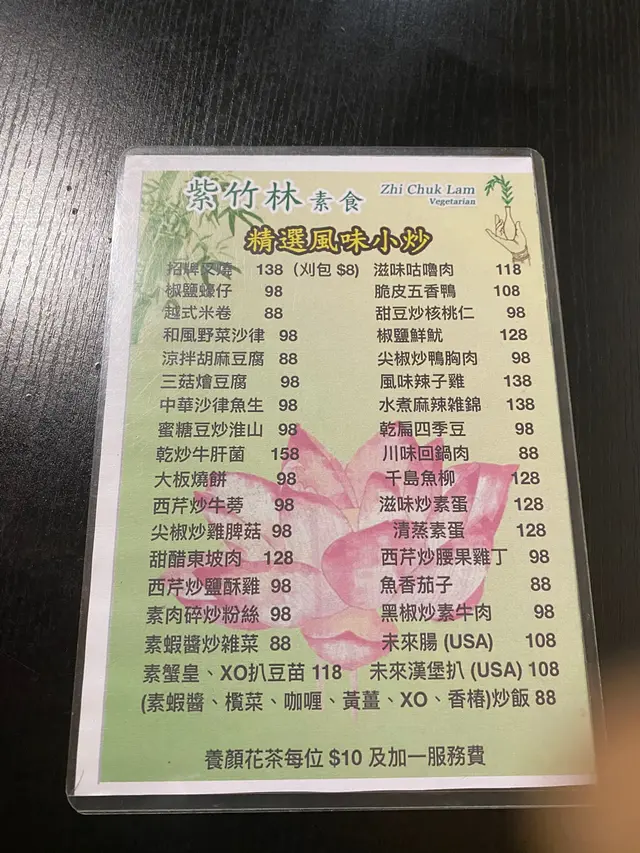 紫竹林素食 Zhi Chuk Lam
Vegetarian
精選風味小炒
招牌叉燒 138 (刈包 $8) 滋味咕嚕肉 118
椒鹽蠔仔 98 脆皮五香鴨 108
越式米卷 88 甜豆炒核桃仁 98
和風野菜沙律 98 椒鹽鮮魷 128
涼拌胡麻豆腐 88 尖椒炒鴨胸肉 98
三菇燴豆腐 98 風味辣子雞 138
中華沙律魚生 98 水煮麻辣雜錦 138
蜜糖豆炒淮山 98 乾扁四季豆 98
乾炒牛肝菌 158 川味回鍋肉 88
大板燒餅 98 千島魚柳 128
西芹炒牛蒡 98 滋味炒素蛋 128
尖椒炒雞脾菇 98 清蒸素蛋 128
甜醋東坡肉 128 西芹炒腰果雞丁 98
西芹炒鹽酥雞 98 魚香茄子 88
素肉碎炒粉絲 98 黑椒炒素牛肉 98
素蝦醬炒雜菜 88 未來腸 (USA) 108
素蟹皇、XO扒豆苗 118 未來漢堡扒 (USA) 108
(素蝦醬、欖菜、咖喱、黃薑、XO、香椿)炒飯 88
養顏花茶每位 $10 及加一服務費